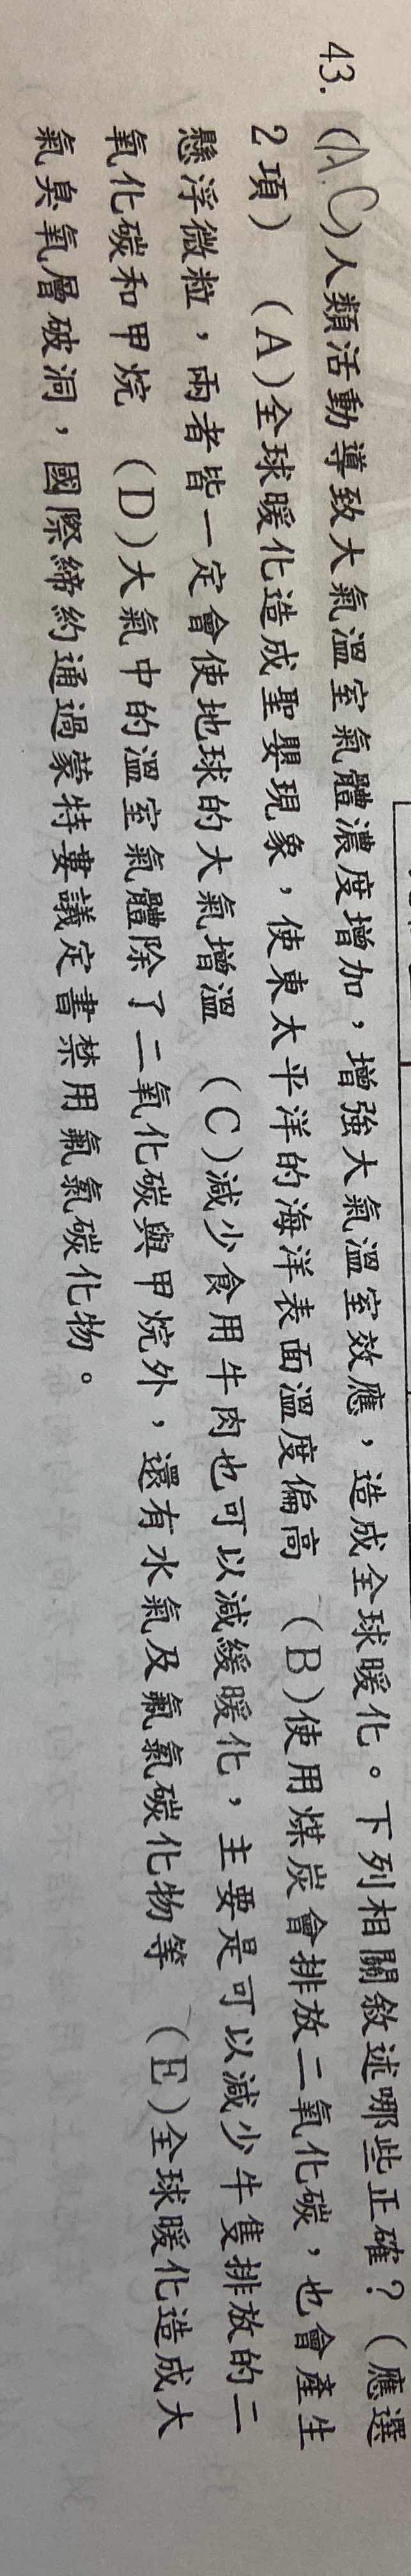 43. (A.C)人類活動導致大氣溫室氣體濃度增加，增強大氣溫室效應，造成全球暖化。下列相關敘述哪些正確？(應選
2項) (A)全球暖化造成聖嬰現象，使東太平洋的海洋表面溫度偏高 (B)使用煤炭會排放二氧化碳，也會產生
懸浮微粒，兩者皆一定會使地球的大氣增溫 (C)減少食用牛肉也可以減緩暖化，主要是可以減少牛隻排放的二
氧化碳和甲烷 (D)大氣中的溫室氣體除了二氧化碳與甲烷外，還有水氣及氟氯碳化物等 (E)全球暖化造成大
氣臭氧層破洞，國際締約通過蒙特婁議定書禁用氟氯碳化物。